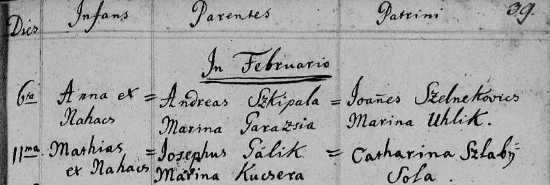 Dies Infans Parentes Patrini 39.
In Februario
6ta Anna ex = Andreas Szkipala = Joañes Szelnekovics
Nahacs Marina Garazsia Marina Uhlik.
11ma Mathias = Josephus Gálik = Catharina Szlabÿ
ex Nahacs Marina Kucsera Sola.